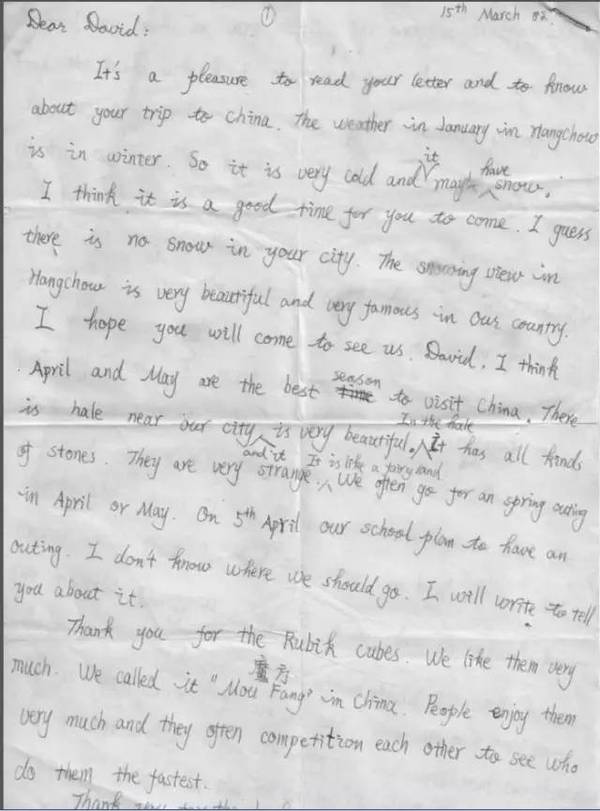 ①
15th March 82.
Dear David:
It's a pleasure to read your letter and to know
about your trip to China. The weather in January in Hangchow
is in winter. So it is very cold and it may have snow.
I think it is a good time for you to come. I guess
there is no snow in your city. The snowing view in
Hangchow is very beautiful and very famous in our country.
I hope you will come to see us. David, I think
April and May are the best season to visit China. There
is hale near our city and it is very beautiful. In the hale It has all kinds
of stones. They are very strange. It is like a fairy land We often go for an spring outing
in April or May. On 5th April our school plan to have an
outing. I don't know where we should go. I will write to tell
you about it.
Thank you for the Rubik cubes. We like them very
much. We called it "Mou Fang" 魔方 in China. People enjoy them
very much and they often competition each other to see who
do them the fastest.
Thank you for the